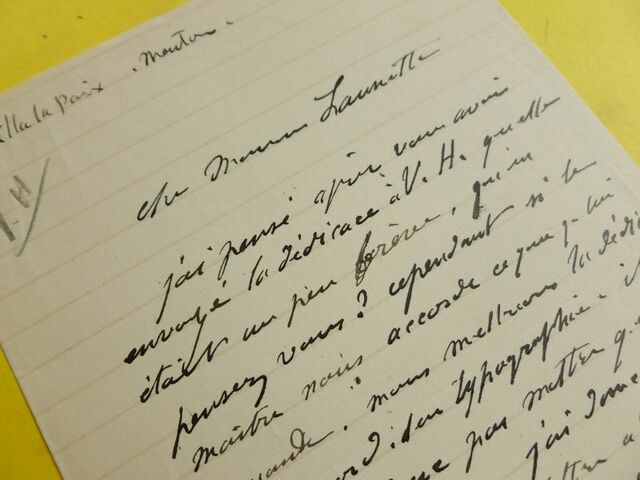 lla la Paix . Menton.
V. H
cher Monsieur Launette
j'ai pensé après vous avoir
envoyé la dédicace à V. H. qu'elle
était un peu brève, qu'en
pensez vous? cependant si le
maître nous accorde ce que je lui
mande, nous mettrons la dédic
typographie. i
pas mettre qu
j'ai donné